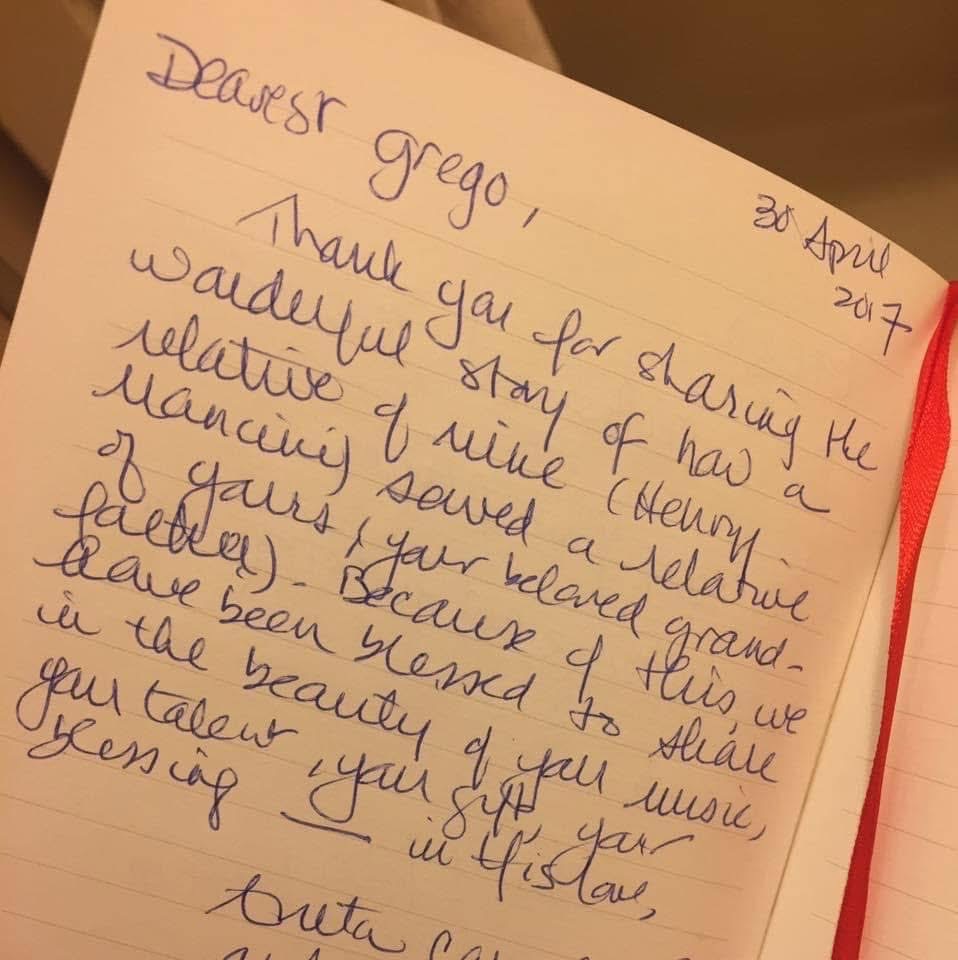 Dearest grego,
30 April
2017
Thank you for sharing the
wonderful story of how a
relative of mine (Henry
Mancini) saved a relative
of yours, (your beloved grand-
father). Because of this, we
have been blessed to share
in the beauty of your music,
your talent, your gift, your
blessing — in His love,